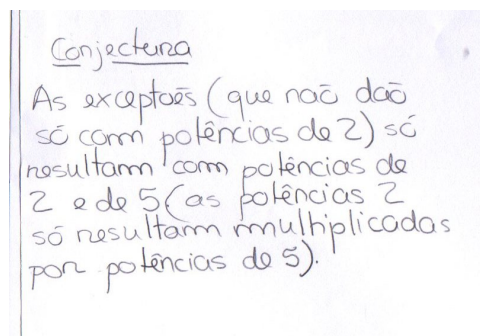 Conjectura
As exceptoẽs (que naõ daõ
só com potências de 2) só
resultam com potências de
2 e de 5 (as potências 2
só resultam multiplicadas
por potências de 5).